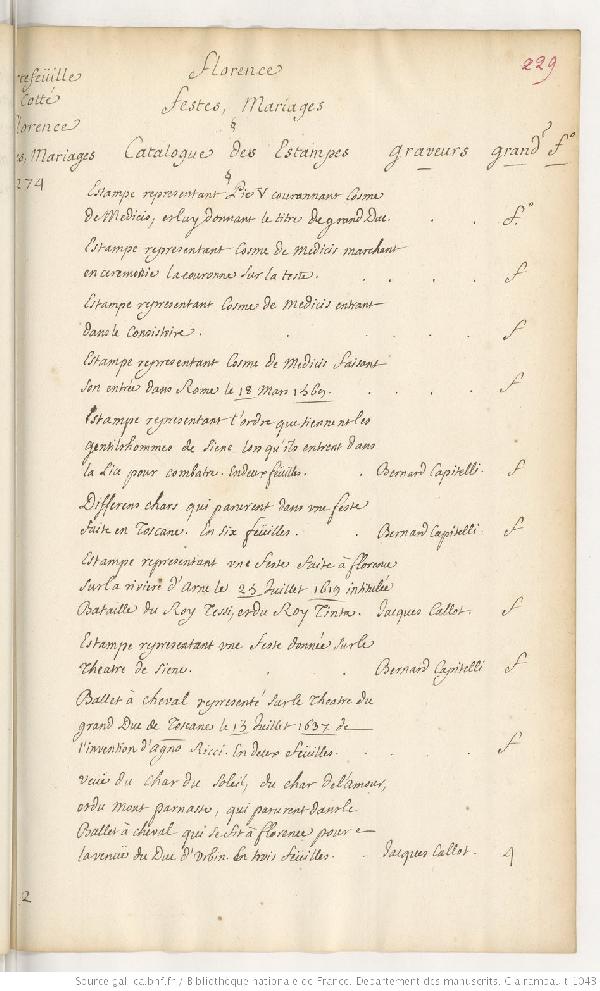 229
Florence
Festes, Mariages
Catalogue des Estampes graveurs grandr fo
rtefeüille
Cotté
lorence
es, Mariages
274
Estampe representant Pie V couronnant Cosme
de Medicis, et luy donnant le titre de grand Duc. . . fo
Estampe representant Cosme de Medicis marchant
en ceremonie la couronne sur la teste. . . . f
Estampe representant Cosme de Medicis entrant
dans le Consistoire. . . . f
Estampe representant Cosme de Medicis faisant
son entrée dans Rome le 18 Mars 1569. . . . f
Estampe representant l'ordre que tiennent les
gentilshommes de Siene lorsqu'ils entrent dans
la Lice pour combatre. En deux feüilles. . Bernard Capitelli. f
Differens chars qui parurent dans vne feste
faite en Toscane. En six feüilles. . Bernard Capitelli. f
Estampe representant vne feste faite à florence
sur la riviere d'Arne le 25 Juillet 1619 intitulée
Bataille du Roy Tessi, et du Roy Tinta. Jacques Callot. f
Estampe representant vne feste donnée sur le
Theatre de Siene. . . Bernard Capitelli f
Ballet à cheval representé sur le Theatre du
grand Duc de Toscane le 15 Juillet 1637 de
l'invention d'agno Ricci. En deux feüilles. . . f
Veüe du char du Soleil, du char de l'amour,
et du mont parnasse, qui parurent dans le
Ballet à cheval qui se fit à florence pour
la venuë du Duc d'Vrbin. En trois feüilles. . Jacques Callot. 4
2
Source gallica.bnf.fr / Bibliothèque nationale de France. Département des manuscrits. Clairambault 1048